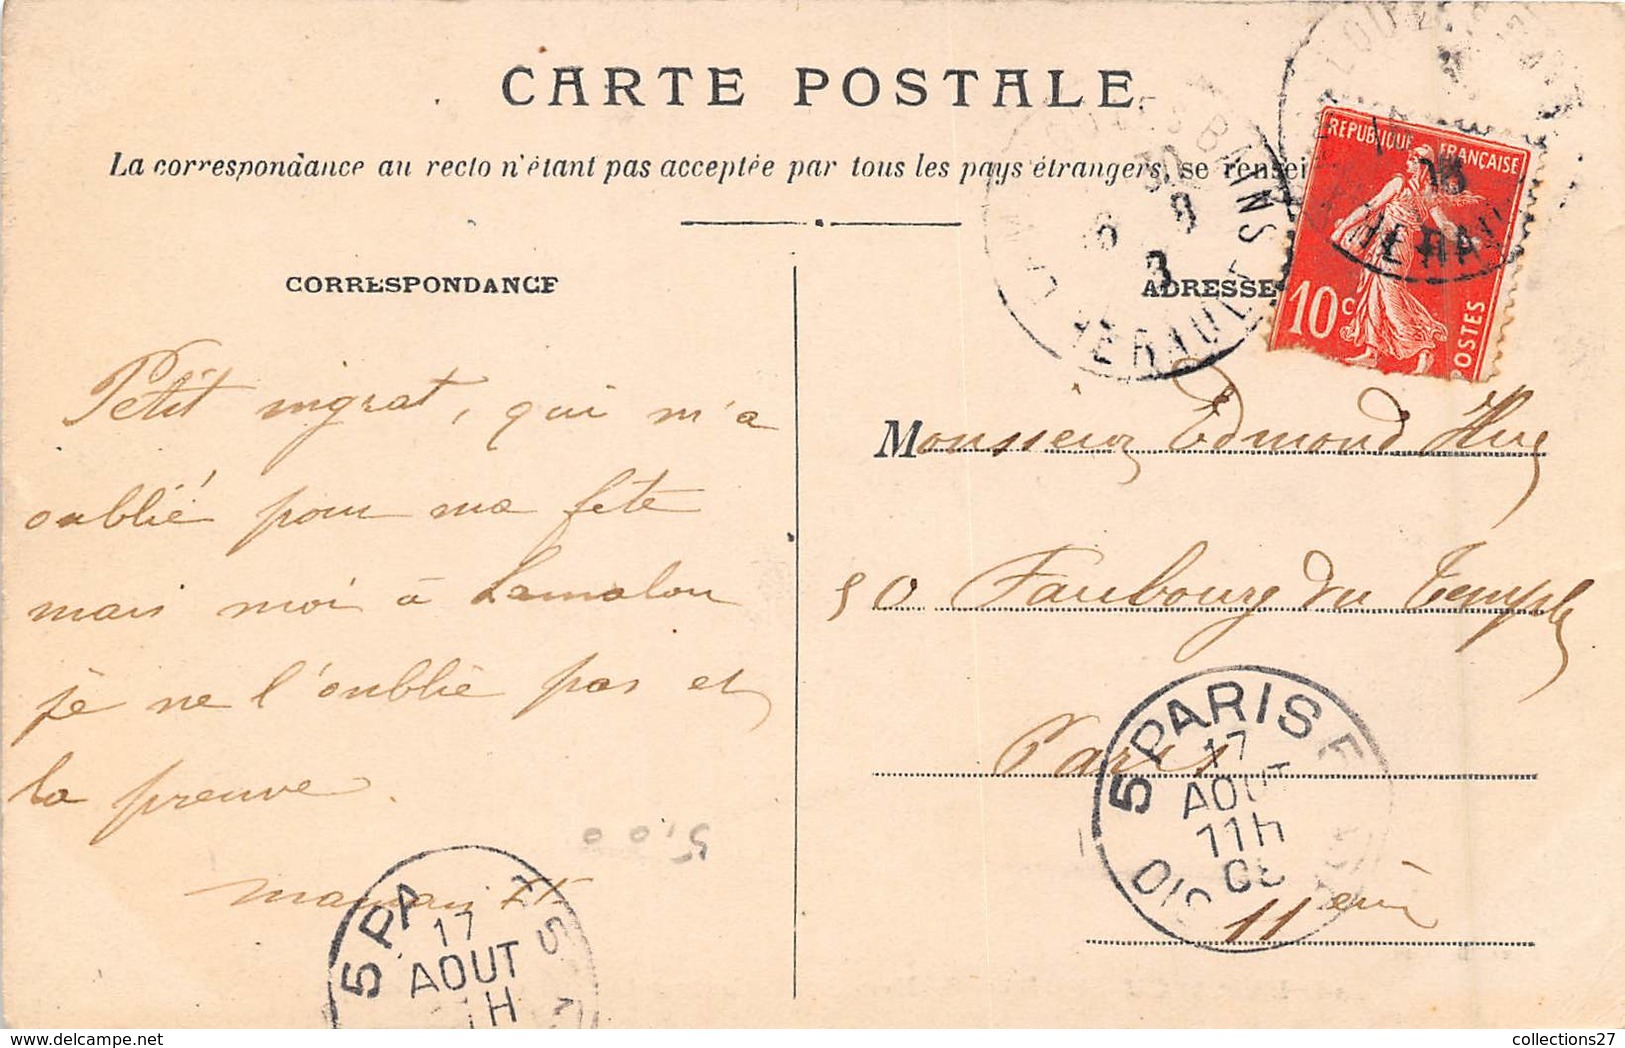 CARTE POSTALE
La correspondance au recto n'étant pas acceptée par tous les pays étrangers, se rensei
CORRESPONDANCE
ADRESSE
REPUBLIQUE FRANÇAISE
10c
POSTES
HERAULT
Petit ingrat, qui m'a
oublié pour ma fête
mais moi à Lamalou
je ne l'oublie pas et
la preuve.
5,00
Monsieur Edmond Hug
50 Faubourg du Temple
Paris
11ème
5 PARIS
17
AOUT
11H
08
DIS
5 PA
17
AOUT
collections27